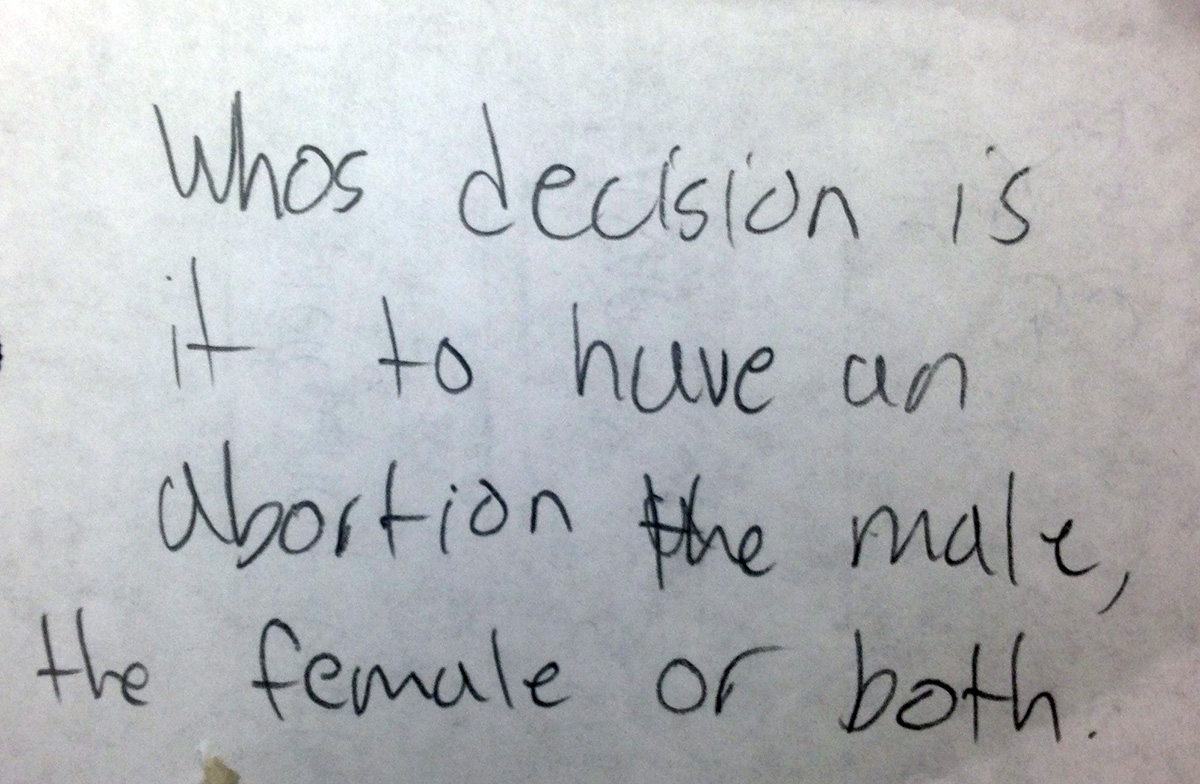 Whos decision is
it to have an
abortion the male,
the female or both.